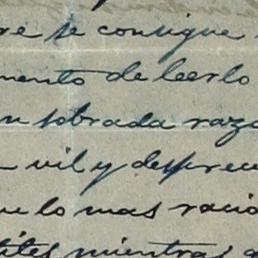 re se consigue
mento de leerlo
n sobrada razo
vil y desprec
ue lo mas racio
tites mientras